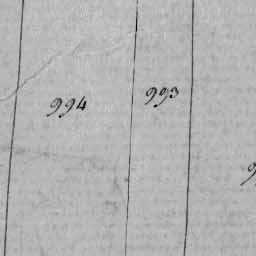 994 993